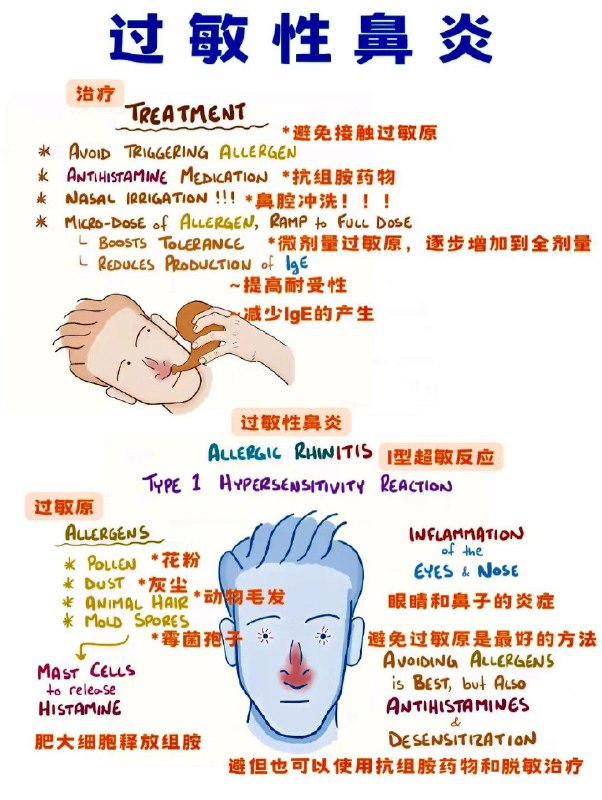 过敏性鼻炎
治疗
TREATMENT
*避免接触过敏原
* AVOID TRIGGERING ALLERGEN
* ANTIHISTAMINE MEDICATION *抗组胺药物
* NASAL IRRIGATION !!! *鼻腔冲洗！！！
* MICRO-DOSE of ALLERGEN, RAMP to FULL DOSE
└ BOOSTS TOLERANCE *微剂量过敏原，逐步增加到全剂量
└ REDUCES PRODUCTION of IgE
~提高耐受性
~减少IgE的产生
过敏性鼻炎
ALLERGIC RHINITIS
I型超敏反应
TYPE 1 HYPERSENSITIVITY REACTION
过敏原
ALLERGENS
* POLLEN *花粉
* DUST *灰尘
* ANIMAL HAIR *动物毛发
* MOLD SPORES
*霉菌孢子
MAST CELLS
to release
HISTAMINE
肥大细胞释放组胺
INFLAMMATION
of the
EYES & NOSE
眼睛和鼻子的炎症
避免过敏原是最好的方法
AVOIDING ALLERGENS
is BEST, but ALSO
ANTIHISTAMINES
&
DESENSITIZATION
避但也可以使用抗组胺药物和脱敏治疗